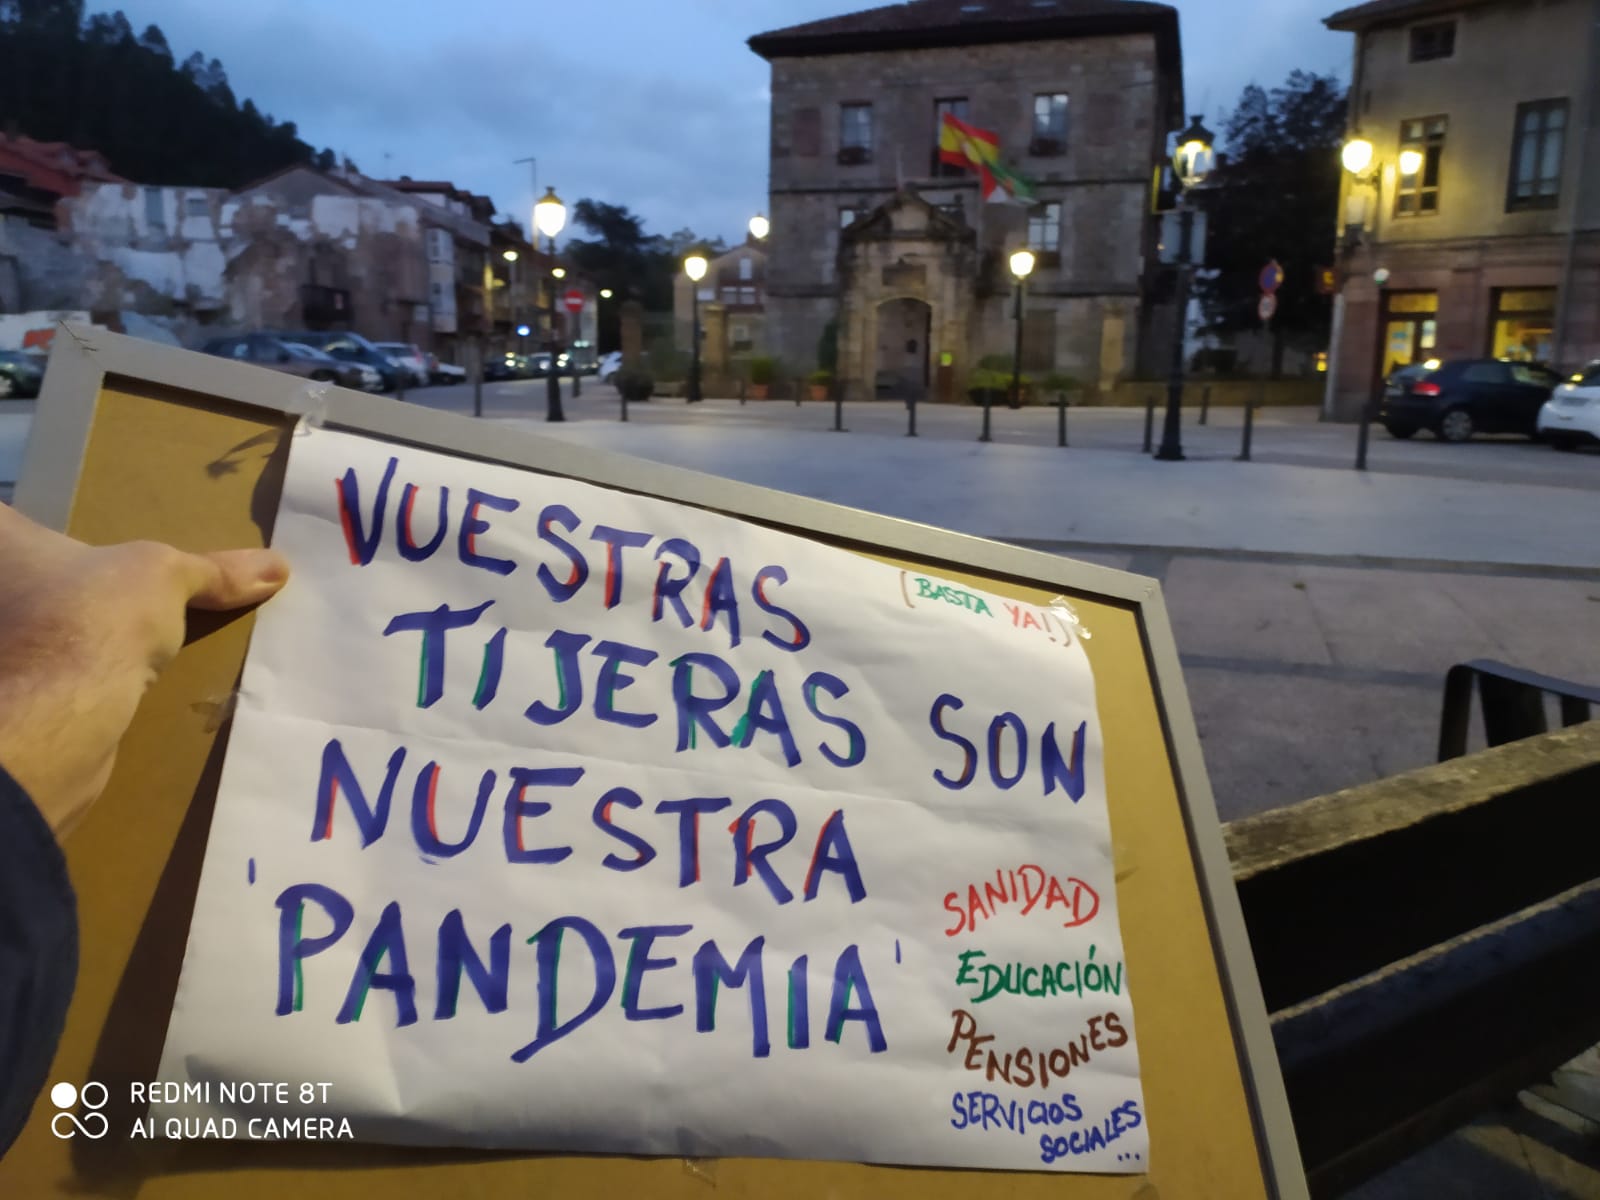 VUESTRAS
(BASTA YA!)
TIJERAS SON
NUESTRA
'PANDEMIA'
SANIDAD
EDUCACIÓN
PENSIONES
SERVICIOS
SOCIALES...
REDMI NOTE 8T
AI QUAD CAMERA